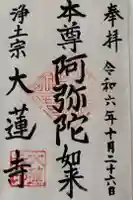 奉拝 令和六年十月二十六日
本尊阿弥陀如来
浄土宗 大蓮寺